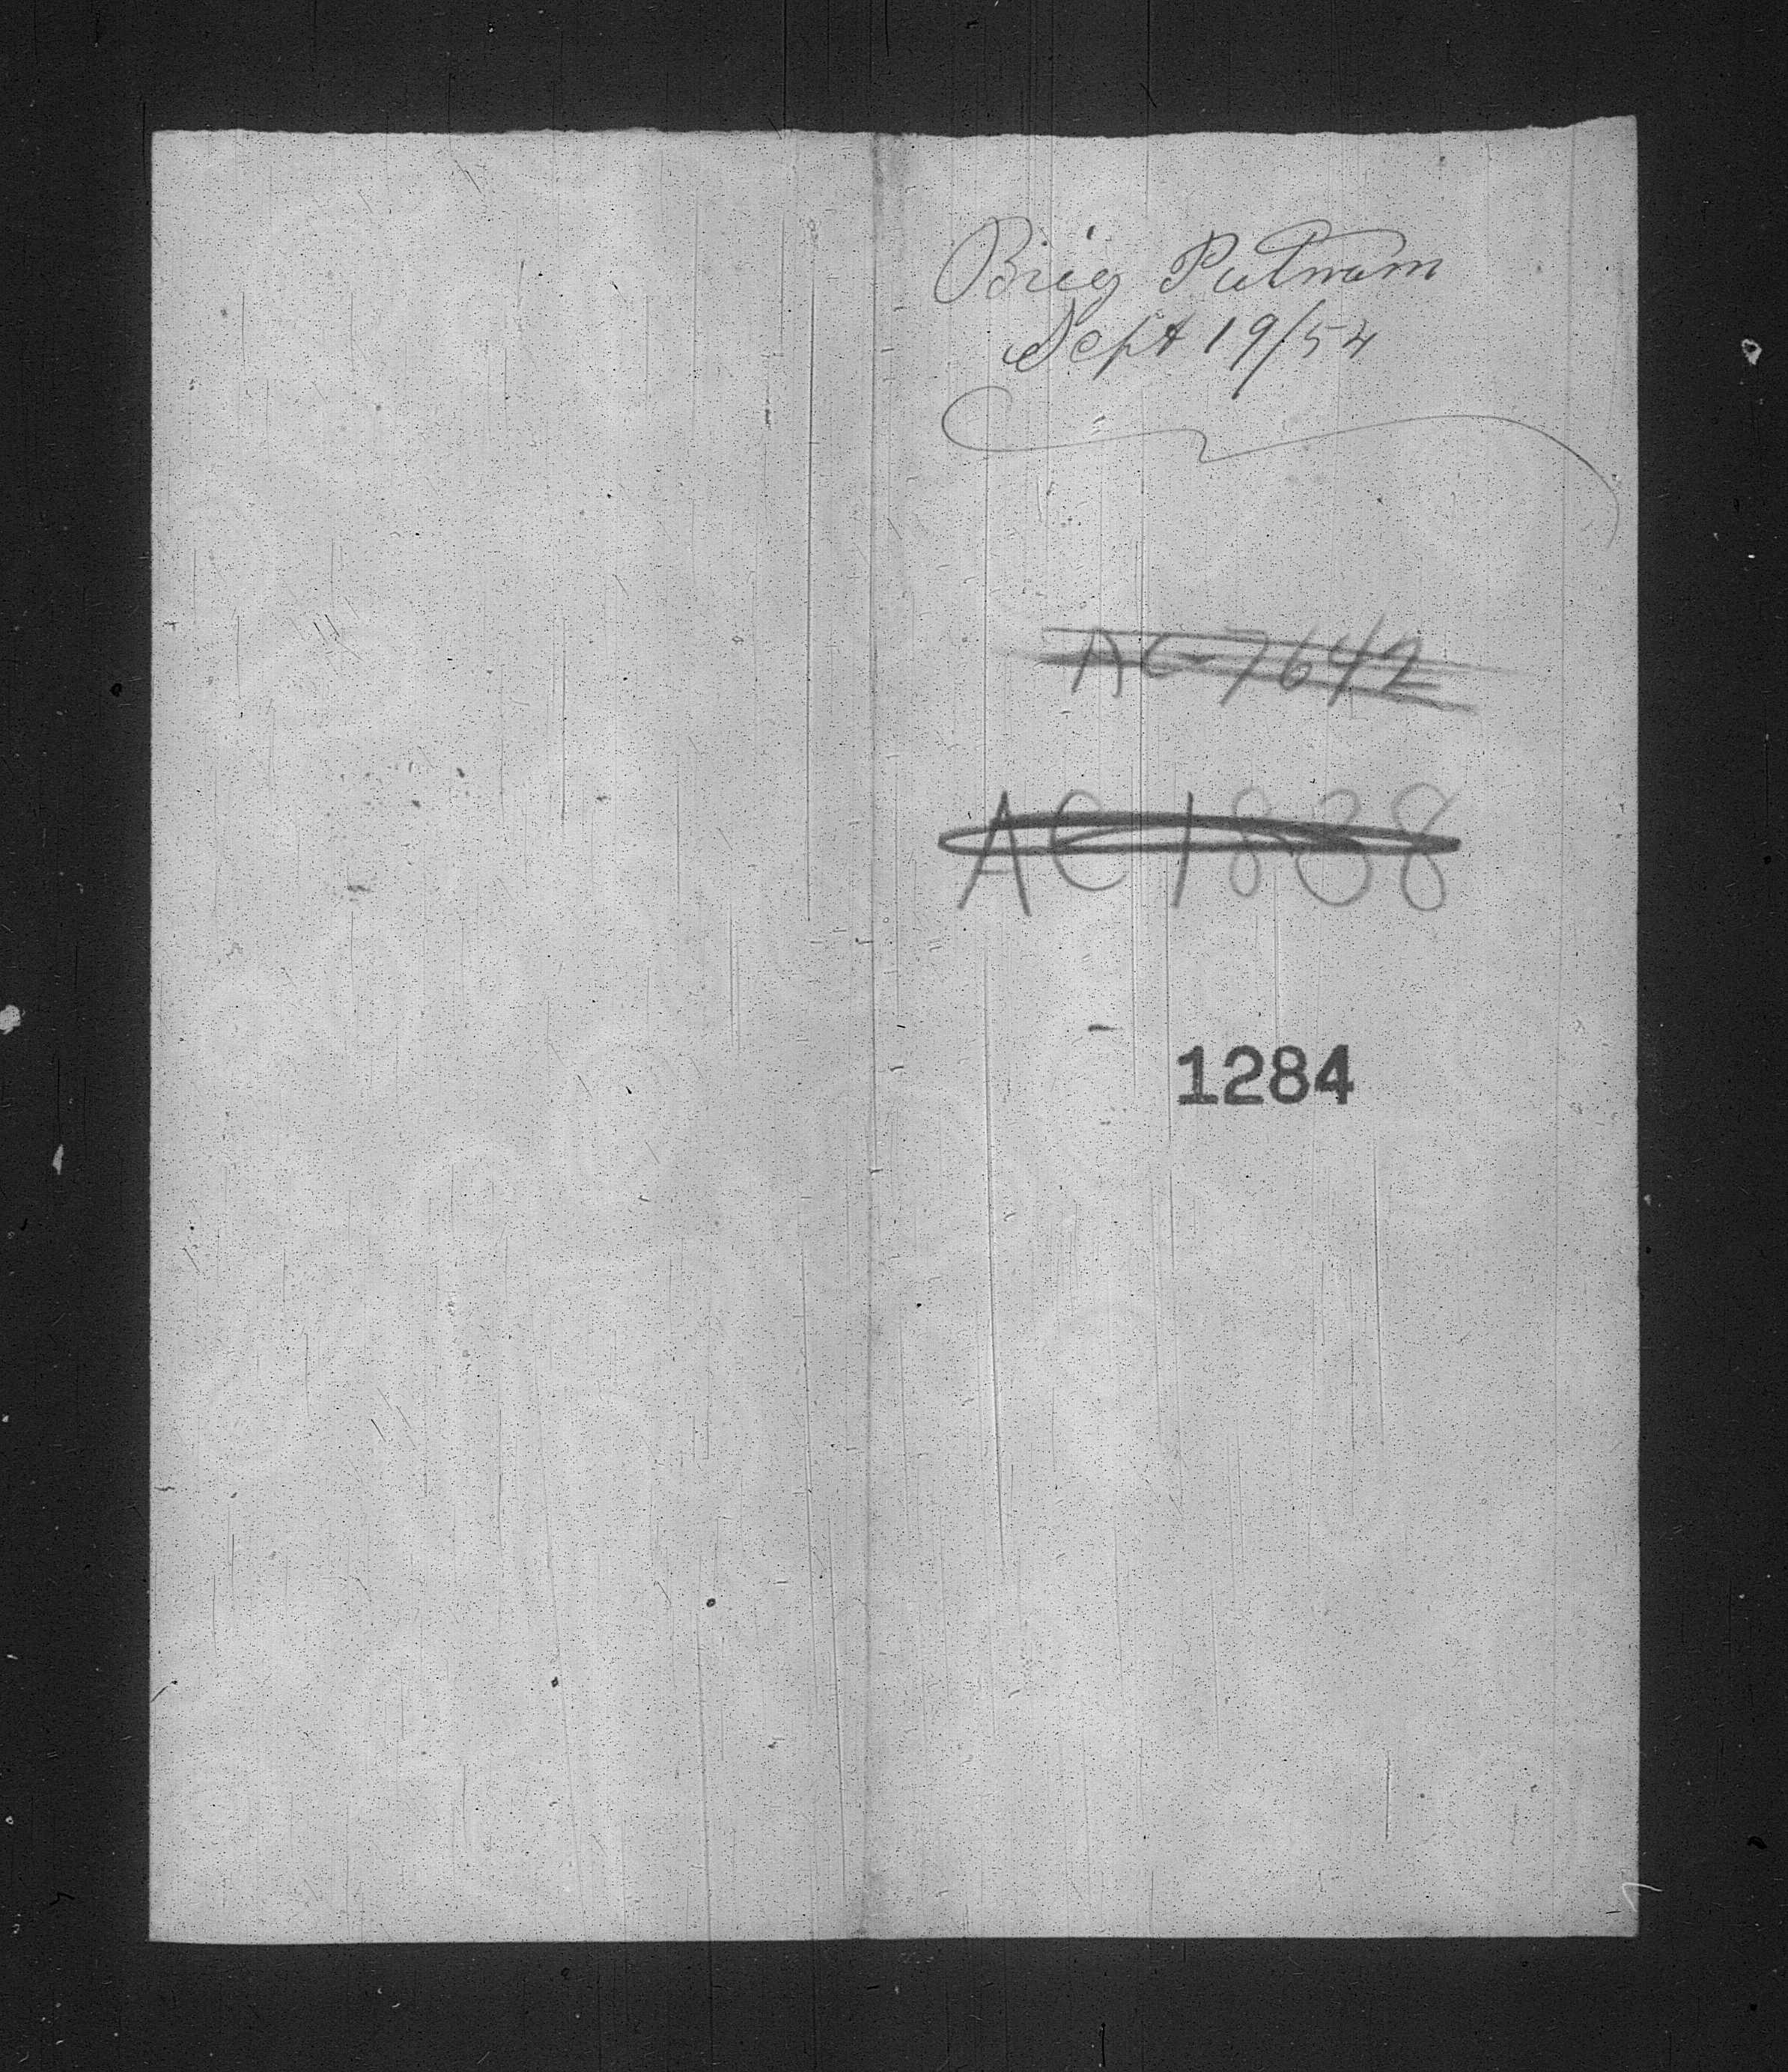 Brig Putnam
Sept 19/54
AC 7642
AC 1838
1284